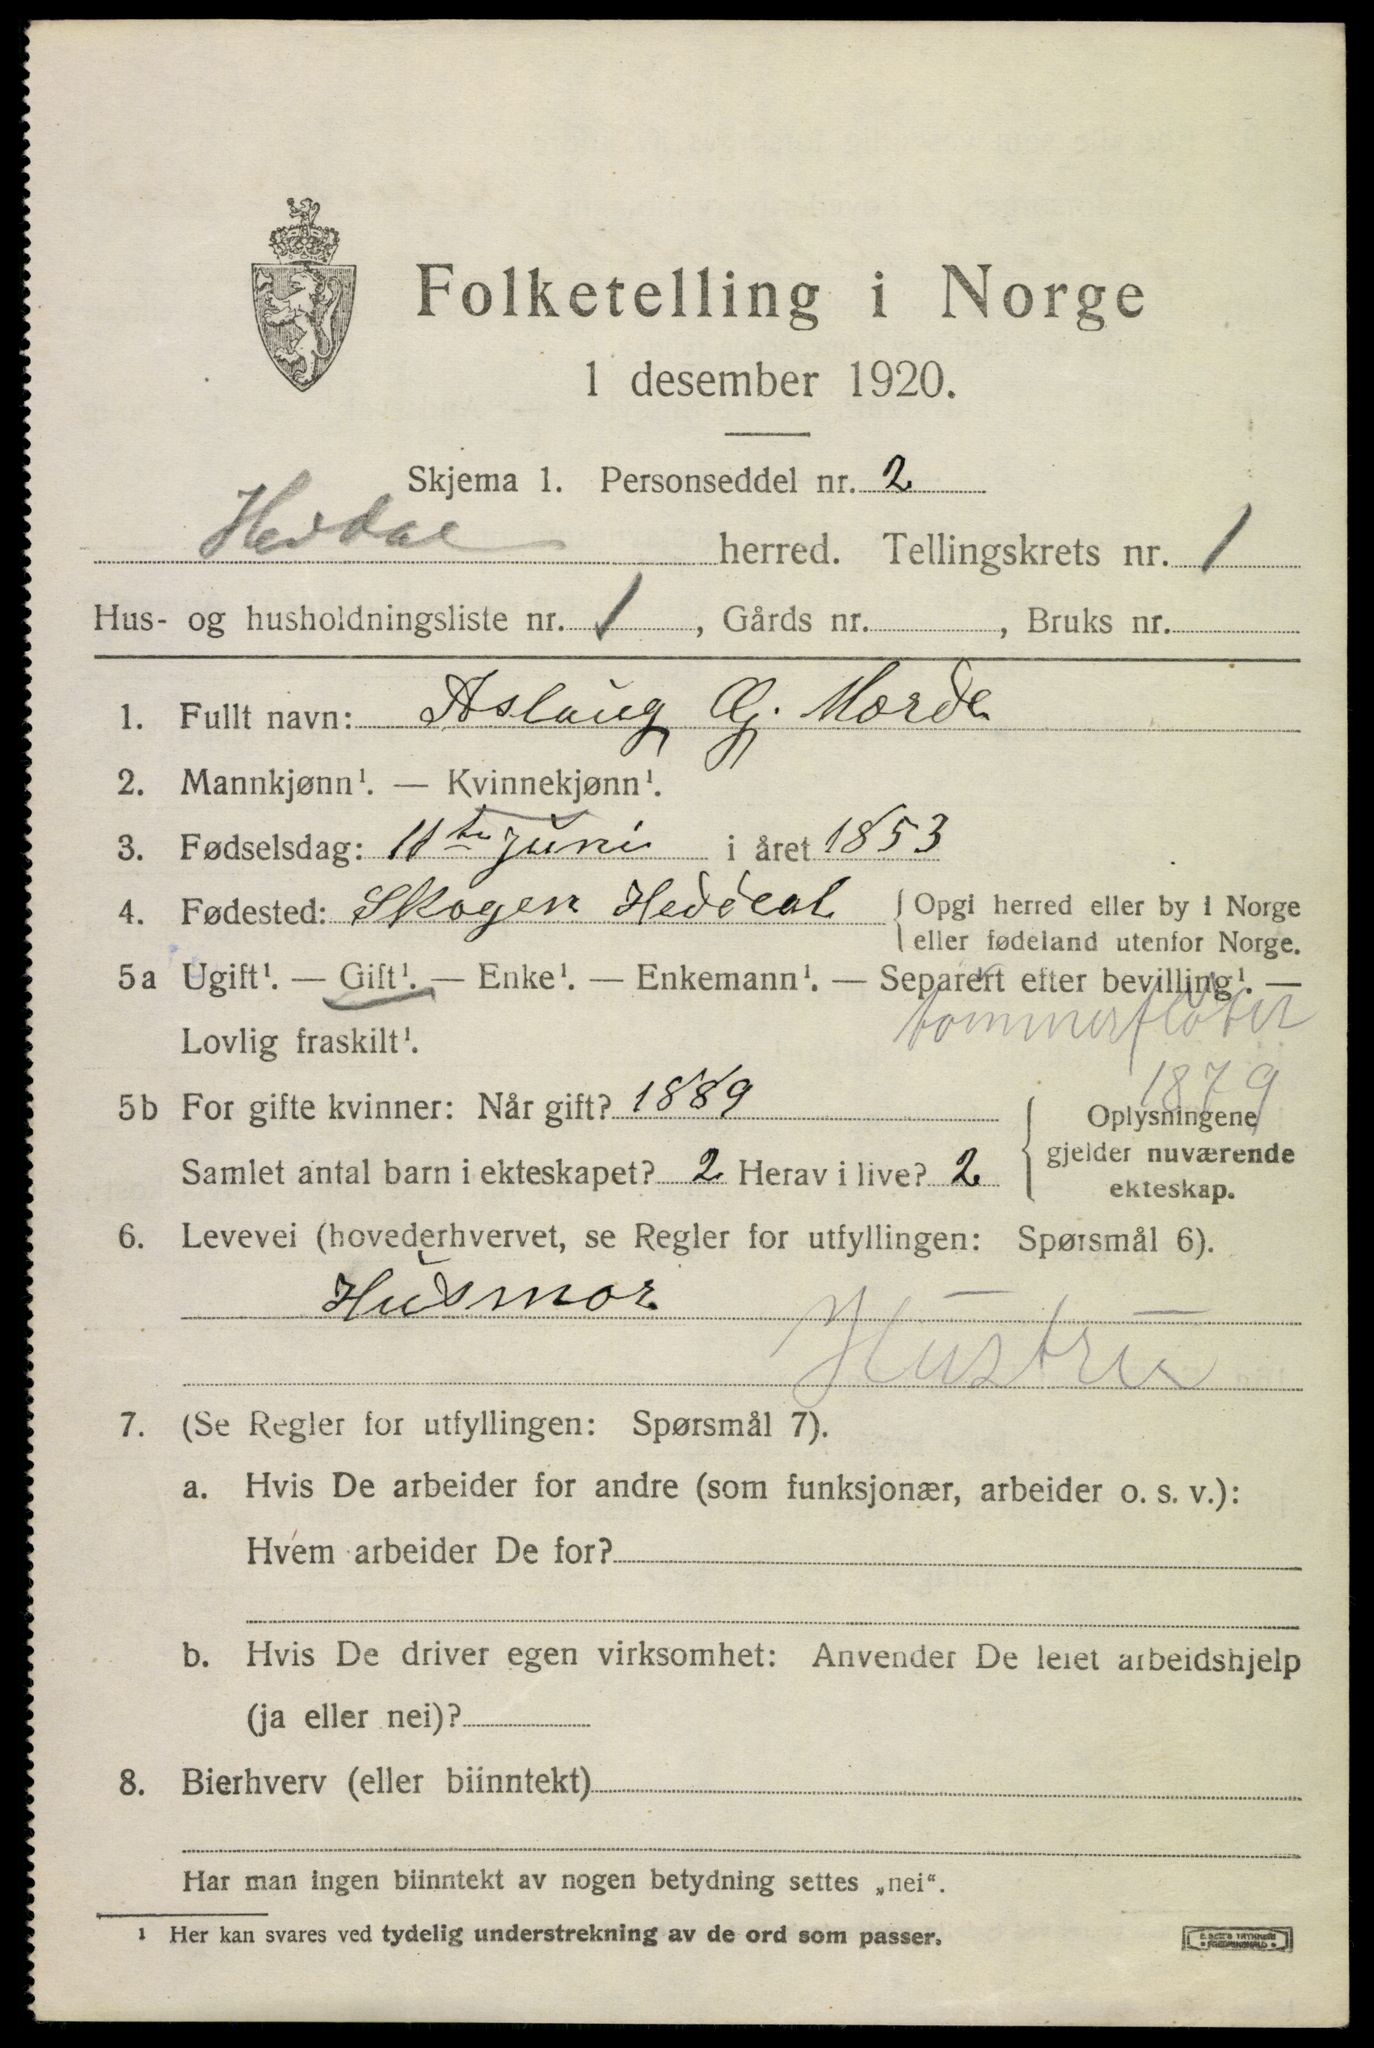 Folketelling i Norge
1 desember 1920.
Skjema 1. Personseddel nr. 2
Heddal herred. Tellingskrets nr. 1
Hus- og husholdningsliste nr. 1, Gårds nr. , Bruks nr.
1. Fullt navn: Aslaug G. Mørde
2. Mannkjønn¹. — Kvinnekjønn¹.
3. Fødselsdag: 11te Juni i året 1853
4. Fødested: Skogen Heddeal { Opgi herred eller by i Norge
eller fødeland utenfor Norge.
5a Ugift¹. — Gift¹. — Enke¹. — Enkemann¹. — Separert efter bevilling¹. —
tømmerfløter
Lovlig fraskilt¹.
1879
5b For gifte kvinner: Når gift? 1889 Oplysningene
Samlet antal barn i ekteskapet? 2 Herav i live? 2 gjelder nuværende
ekteskap.
6. Levevei (hovederhvervet, se Regler for utfyllingen: Spørsmål 6).
Husmor
Hustru
7. (Se Regler for utfyllingen: Spørsmål 7).
a. Hvis De arbeider for andre (som funksjonær, arbeider o. s. v.):
Hvem arbeider De for?
b. Hvis De driver egen virksomhet: Anvender De leiet arbeidshjelp
(ja eller nei)?
8. Bierhverv (eller biinntekt)
Har man ingen biinntekt av nogen betydning settes „nei“.
¹ Her kan svares ved tydelig understrekning av de ord som passer.